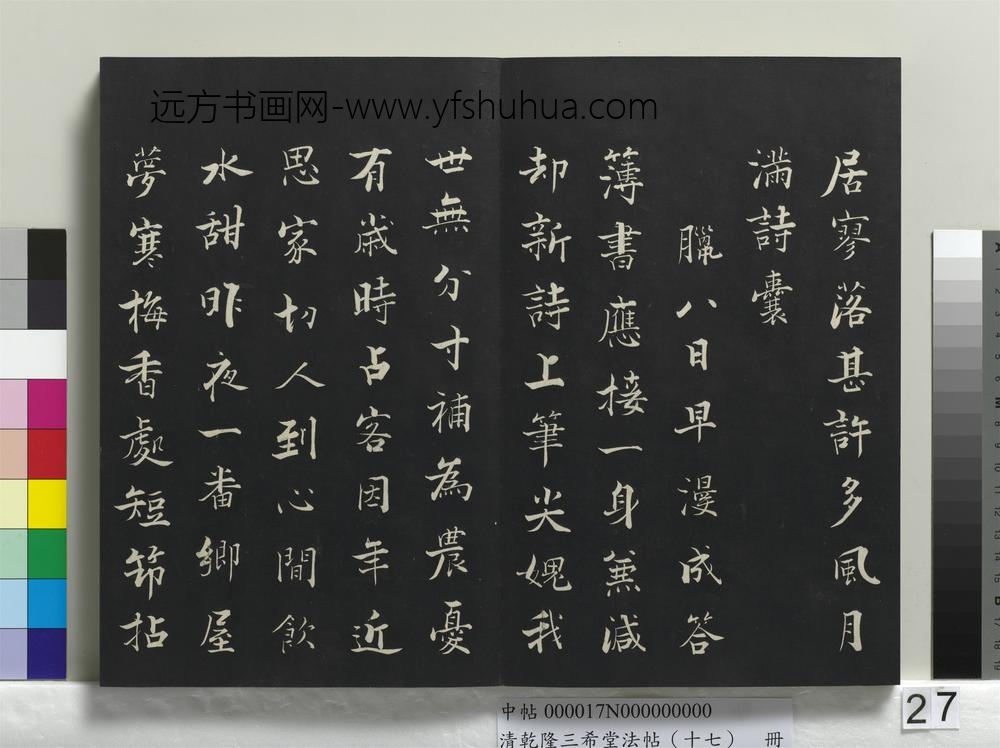 远方书画网-www.yfshuhua.com
居寥落甚許多風月
滿詩囊
臘八日早漫成答
簿書應接一身兼減
却新詩上筆尖媿我
世無分寸補為農憂
有歲時占客因年近
思家切人到心閒飲
水甜昨夜一番鄉屋
夢寒梅香處短筇拈
中帖000017N000000000
清乾隆三希堂法帖（十七） 冊
27